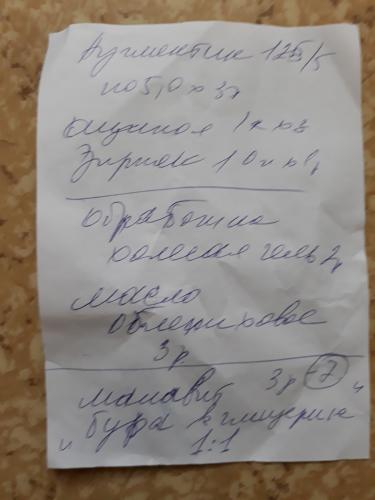 Аугментин 125/5
по 5,0 х 3р
1к х 3
Зиртек 10к х 1р
обработка
холисал гель 2р
масло
облепиховое
3р
малавит 3р - 7
"бура в глицерине"
1:1